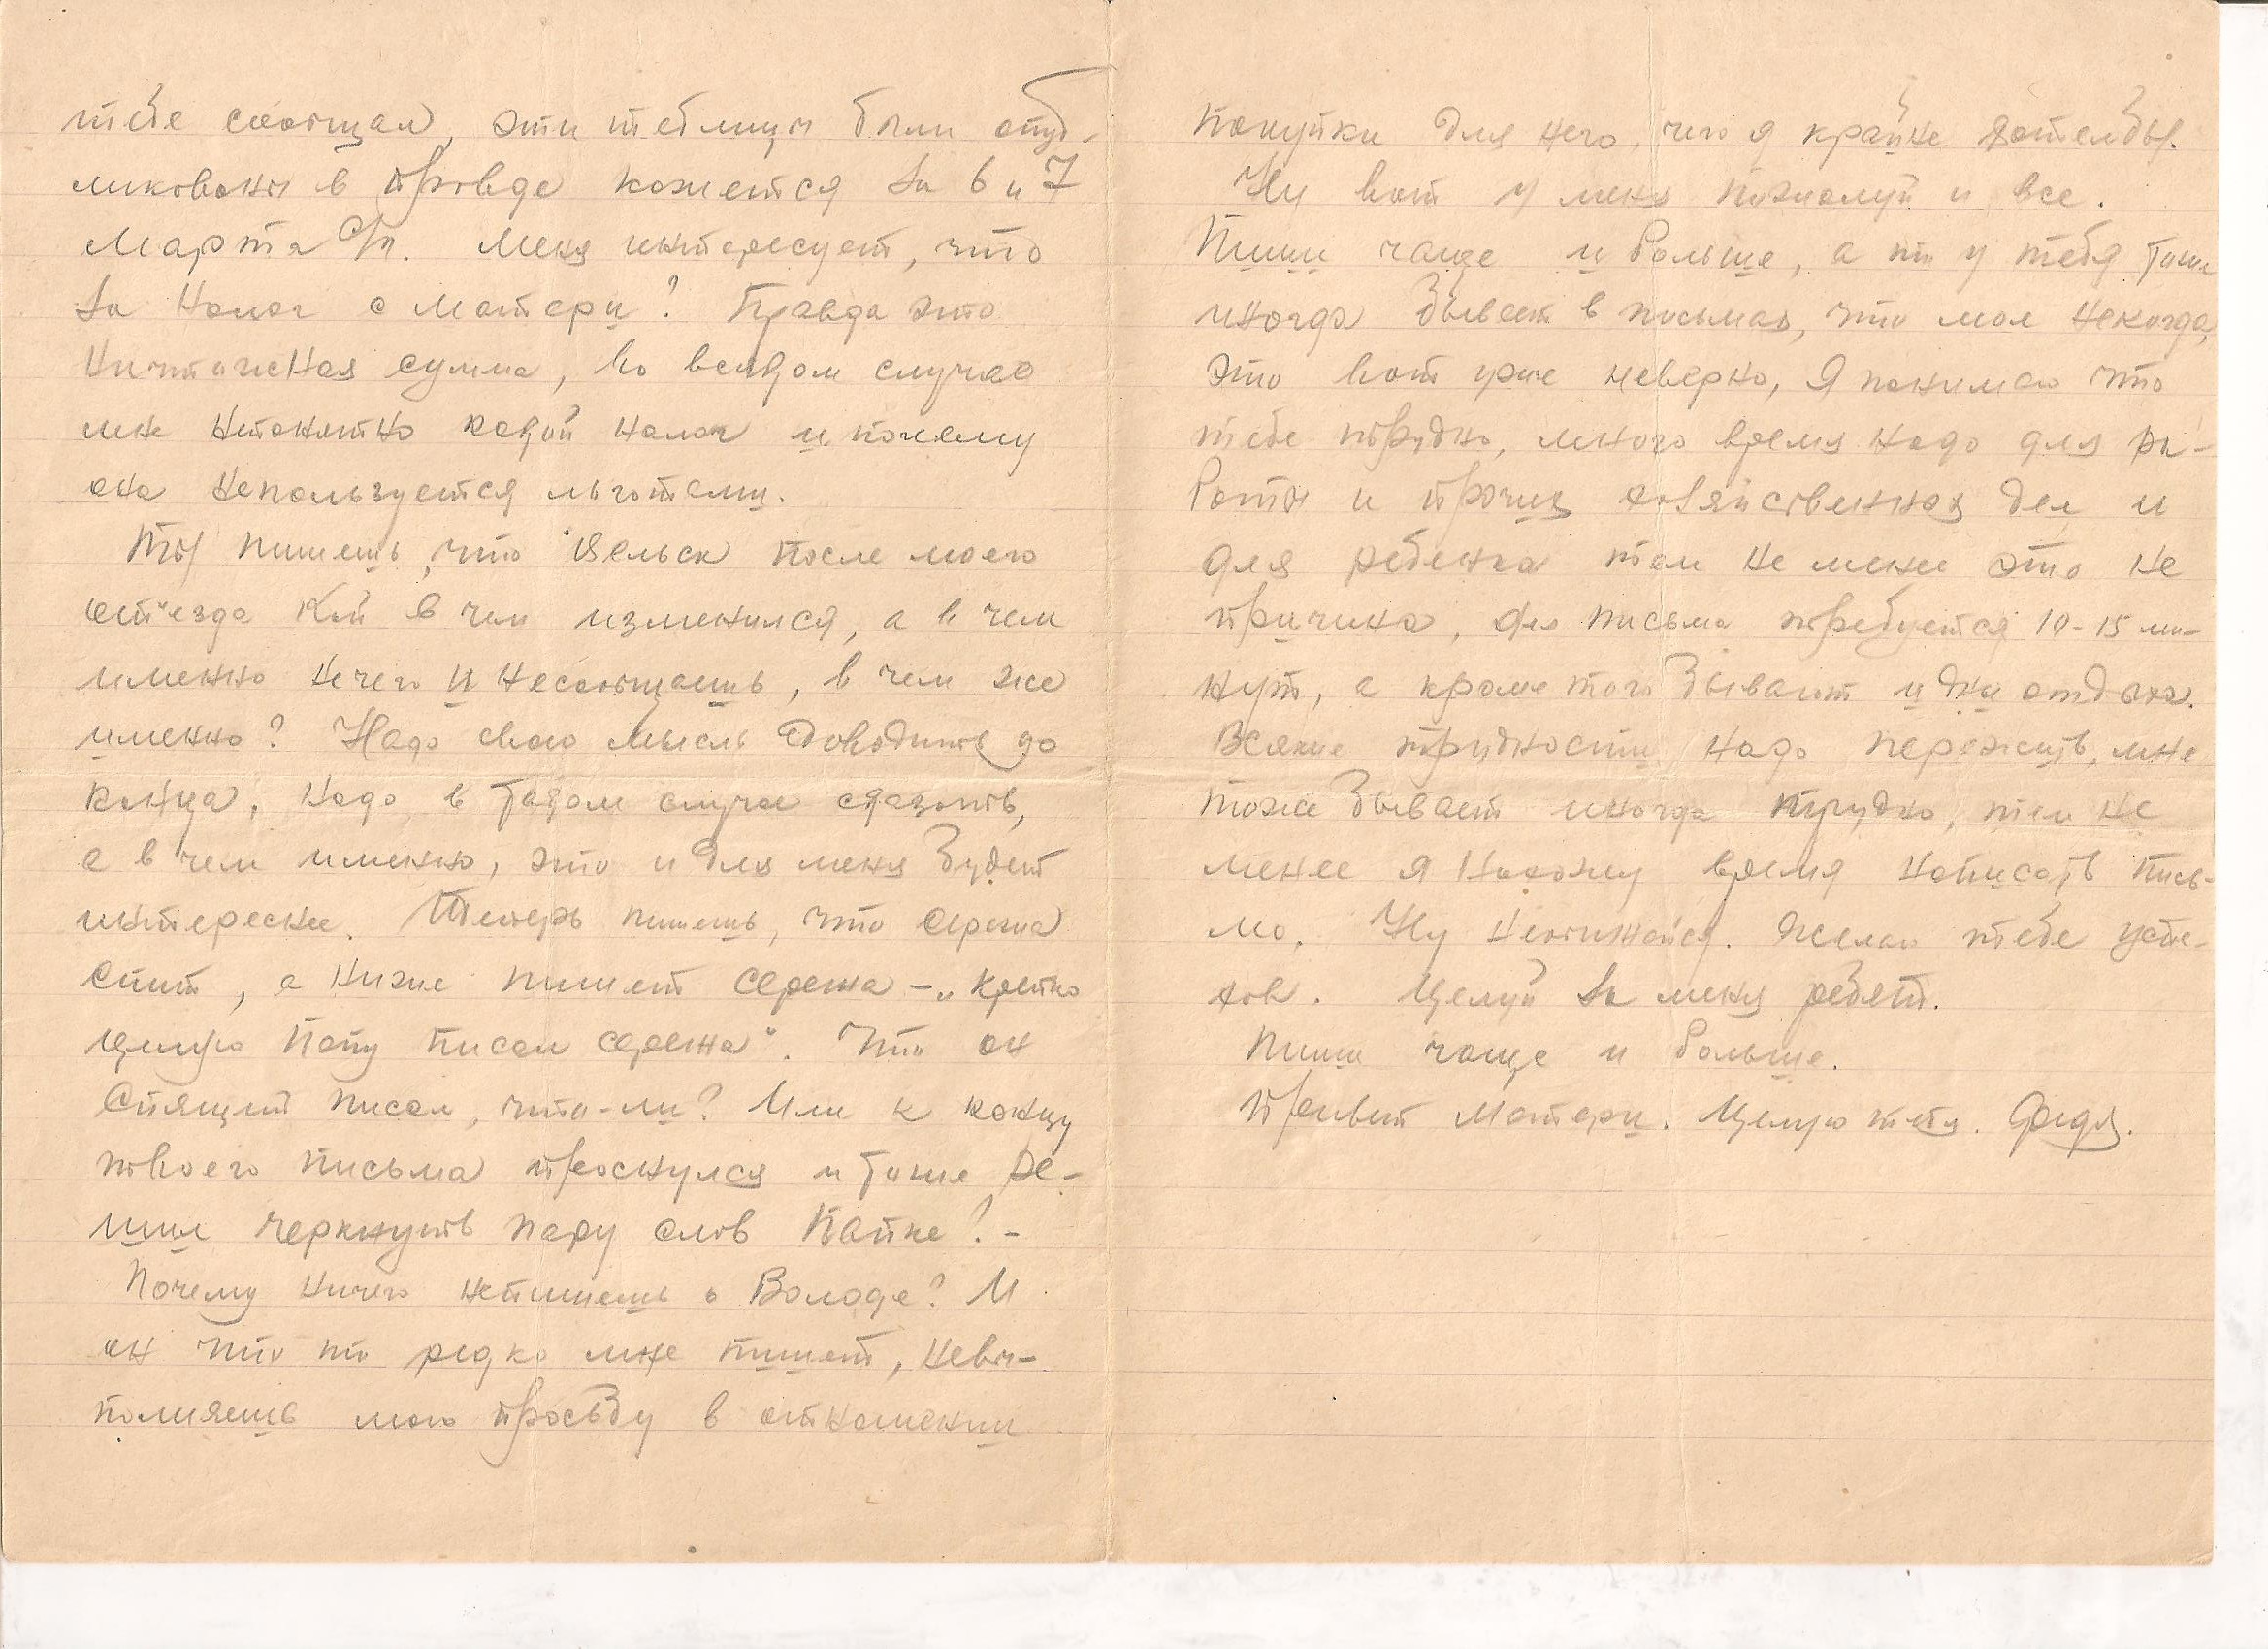 тебе сообщал, эти таблицы были опуб-
ликованы в правде кажется за 6 и 7
Марта с/г. Меня интересует, что
за налог с матери? Правда это
ничтожная сумма, во всяком случае
мне непонятно какой налог и почему
она непользуется льготами.
Ты пишешь, что Вельск после моего
отъезда кой в чем изменился, а в чем
именно нечего и несообщаешь, в чем же
именно? Надо свою мысль доводить до
конца, надо в таком случае сказать,
а в чем именно, это и для меня будет
интереснее. Теперь пишешь, что Сережа
спит, а ниже пишет Сережа – „крепко
целую папу писал сережа". Что он
спящий писал, что-ли? Или к концу
твоего письма проснулся и тоже ре-
шил черкнуть пару слов папке? -
Почему ничего непишешь о Володе? И
он что то редко мне пишет, невы-
полняешь мою просьбу в отношении
покупки для него, чего я крайне хотелбы.
Ну вот у меня пожалуй и все.
Пиши чаще и больше, а то у тебя тоже
иногда бывает в письмах, что мол некогда,
это вот уже неверно, я понимаю что
тебе трудно, много время надо для ра-
боты и прочих хозяйственных дел и
для ребенка тем не менее это не
причина, для письма требуется 10-15 ми-
нут, а кроме того бывают и дни отдыха.
Всякие трудности надо пережить, мне
тоже бывает иногда трудно, тем не
менее я нахожу время написать пись-
мо. Ну необижайся. Желаю тебе успе-
хов. Целуй за меня ребят.
Пиши чаще и больше.
Привет матери. Целую тебя. Федя.